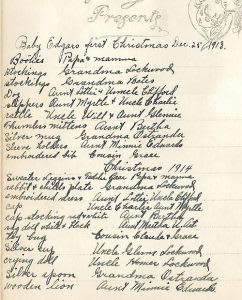 Presents
Baby Edgars first Christmas Dec. 25, 1913.
Booties Papa & mamma
stockings Grandma Lockwood
stockings Grandma Bates
Dog Aunt Lottie & Uncle Clifford
slippers Aunt Myrtle & Uncle Charlie
rattle Uncle Will & Aunt Glennie
thumbless mittens Aunt Bertha
Silver mug Grandma Ostrander
Sleeve holders Aunt Minnie Edwards
embroidered bib Cousin Grace
Christmas 1914
Sweater Leggins & Teddie Bear Papa & mamma
rabbit & childs plate Grandma Lockwood
embroidered dress Aunt Lottie, Uncle Clifford
cap Uncle Charlie & Aunt Myrtle
cap stocking red & white Aunt Bertha
rag doll Aunt Martha
toy bug Cousin Claude & Grace
Uncle Glenn Lockwood
crying doll Uncle Homer Lockwood
Silver spoon Grandma Ostrander
wooden lion Aunt Minnie Edwards